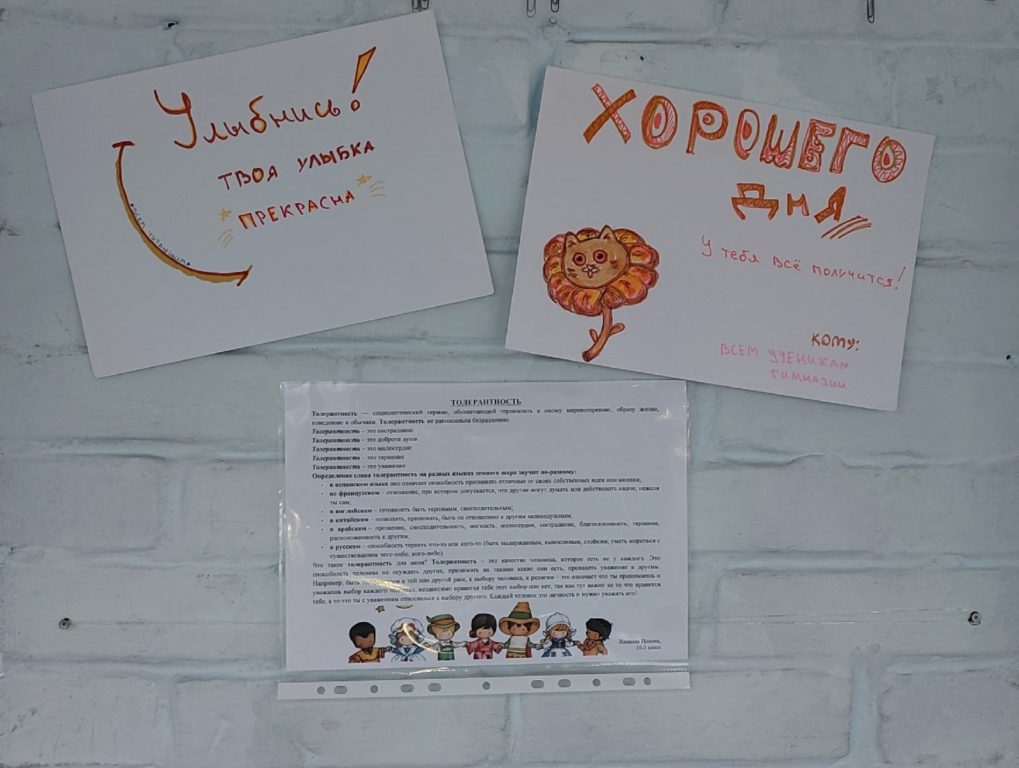 Улыбнись!
ТВОЯ УЛЫБКА
ПРЕКРАСНА
ХОРОШЕГО
ДНЯ
У тебя всё получится!
КОМУ:
ВСЕМ УЧЕНИКАМ
ГИМНАЗИИ
ТОЛЕРАНТНОСТЬ
Толерантность — социологический термин, обозначающий терпимость к иному мировоззрению, образу жизни,
поведению и обычаям. Толерантность не равносильна безразличию
Толерантность – это сострадание
Толерантность – это доброта души
Толерантность – это милосердие
Толерантность – это терпение
Толерантность – это уважение
Определение слова толерантность на разных языках земного шара звучит по-разному:
• в испанском языке оно означает способность признавать отличные от своих собственных идеи или мнения,
• во французском – отношение, при котором допускается, что другие могут думать или действовать иначе, нежели
ты сам;
• в английском – готовность быть терпимым, снисходительным;
• в китайском – позволять, принимать, быть по отношению к другим великодушным;
• в арабском – прощение, снисходительность, мягкость, милосердие, сострадание, благосклонность, терпение,
расположенность к другим;
• в русском – способность терпеть что-то или кого-то (быть выдержанным, выносливым, стойким, уметь мириться с
существованием чего-либо, кого-либо).
Что такое толерантность для меня? Толерантность – это качество человека, которое есть не у каждого. Это
способность человека не осуждать других, принимать их такими какие они есть, проявлять уважение к другим.
Например, быть к той или другой расе, к выбору человека, к религии – это означает что ты принимаешь и
уважаешь выбор каждого человека, независимо нравится тебе этот выбор или нет, так как тут важно не то что нравится
тебе, а то что ты с уважением относишься к выбору другого. Каждый человек это личность и нужно уважать его!
10-3 класс